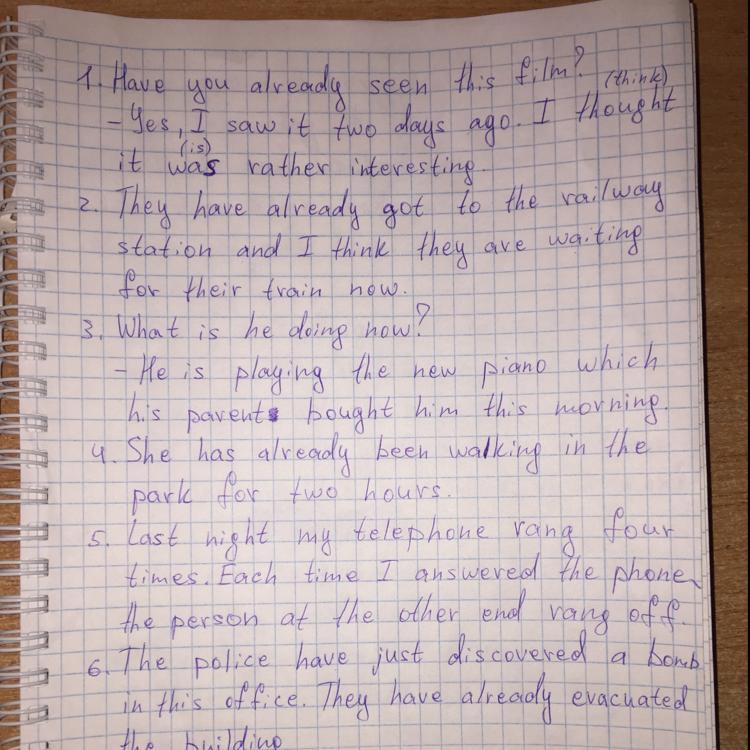 1. Have you already seen this film?
(think)
- Yes, I saw it two days ago. I thought
(is)
it was rather interesting.
2. They have already got to the railway
station and I think they are waiting
for their train now.
3. What is he doing now?
- He is playing the new piano which
his parents bought him this morning.
4. She has already been walking in the
park for two hours.
5. Last night my telephone rang four
times. Each time I answered the phone,
the person at the other end rang off.
6. The police have just discovered a bomb
in this office. They have already evacuated
the building